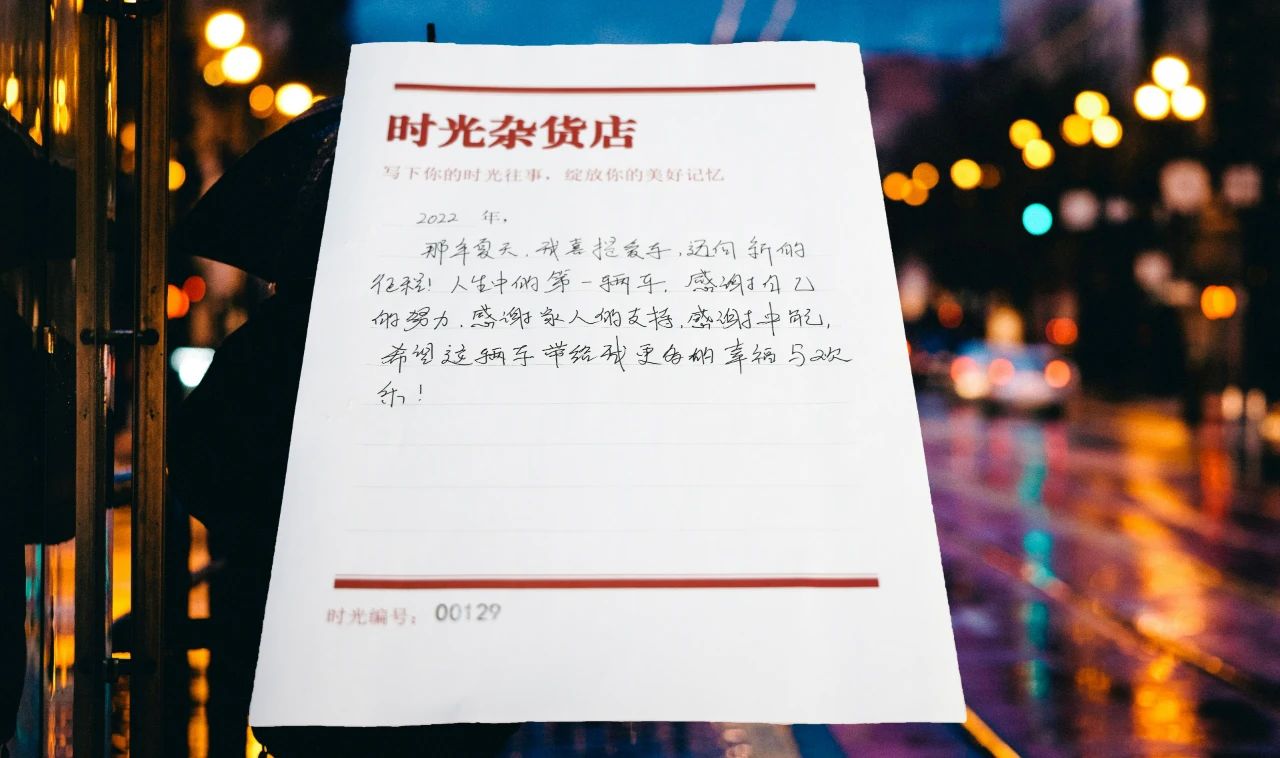 时光杂货店
写下你的时光往事，绽放你的美好记忆
2022 年，
那年夏天，我喜提爱车，迈向新的
征程！人生中的第一辆车，感谢自己
的努力，感谢家人的支持，感谢中
希望这辆车带给我更多的幸福与欢
乐！
时光编号： 00129